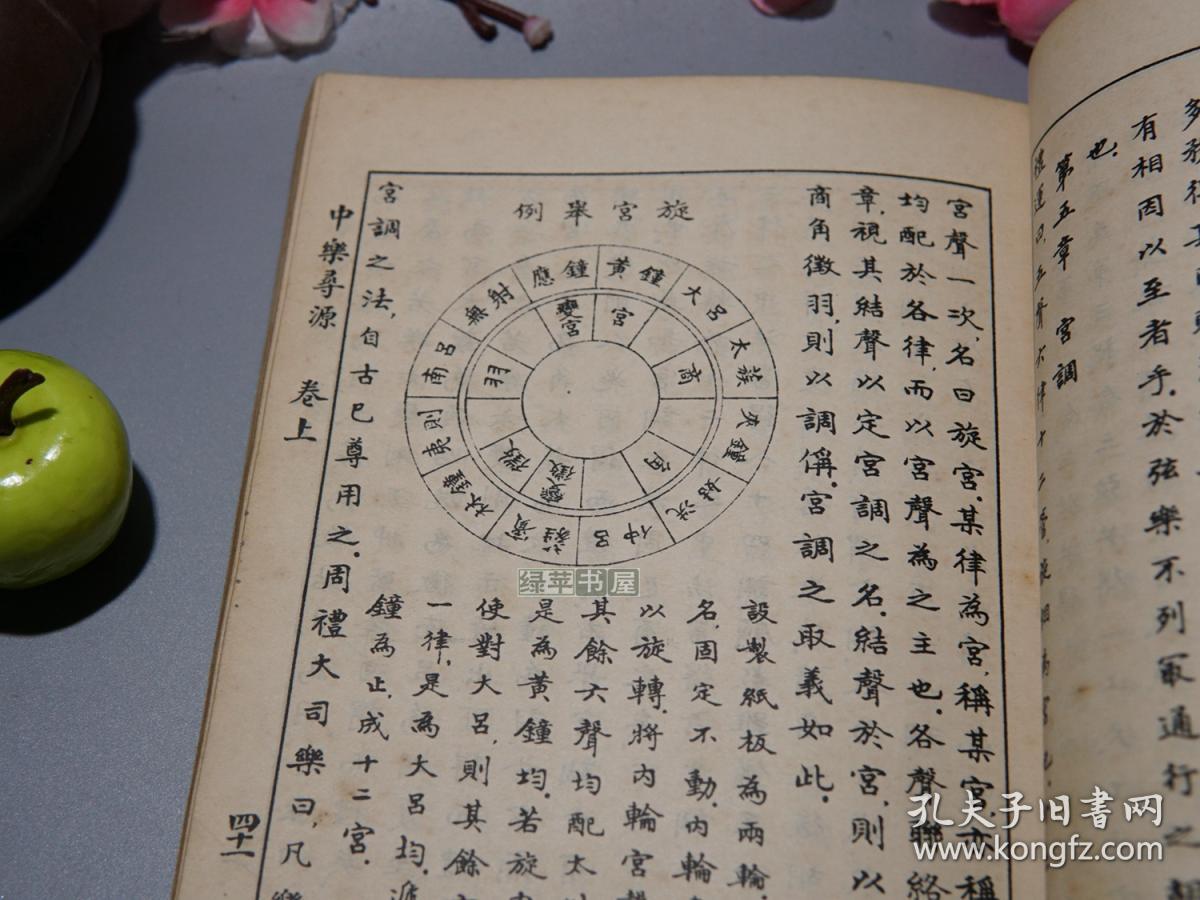 有相因以至者乎.於弦樂不列.取通行之調
也.
第五章 宮調
宮聲一次,名曰旋宮.某律為宮,稱某宮,亦稱
均配於各律,而以宮聲為之主也.各聲聯絡
章,視其結聲以定宮調之名.結聲於宮,則以
商角徵羽,則以調偁.宮調之取義如此.
旋宮舉例
黃鐘
大呂
太簇
夾鐘
姑洗
仲呂
蕤賓
林鐘
夷則
南呂
無射
應鐘
宮
商
角
變徵
徵
羽
變宮
設製紙板為兩輪,
名,固定不動.內輪
以旋轉.將內輪宮
其餘六聲均配太
是為黃鐘均.若旋
使對大呂,則其餘
一律,是為大呂均.
鐘為止,成十二宮.
宮調之法,自古已尊用之.周禮大司樂曰,凡樂
中樂尋源 卷上
四十一
绿苹书屋
孔夫子旧书网
www.kongfz.com